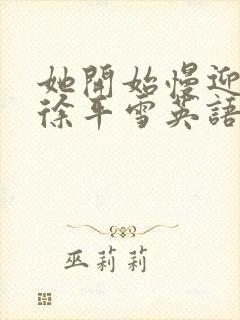 她開始慢迎
徐平雪英語
巫莉莉